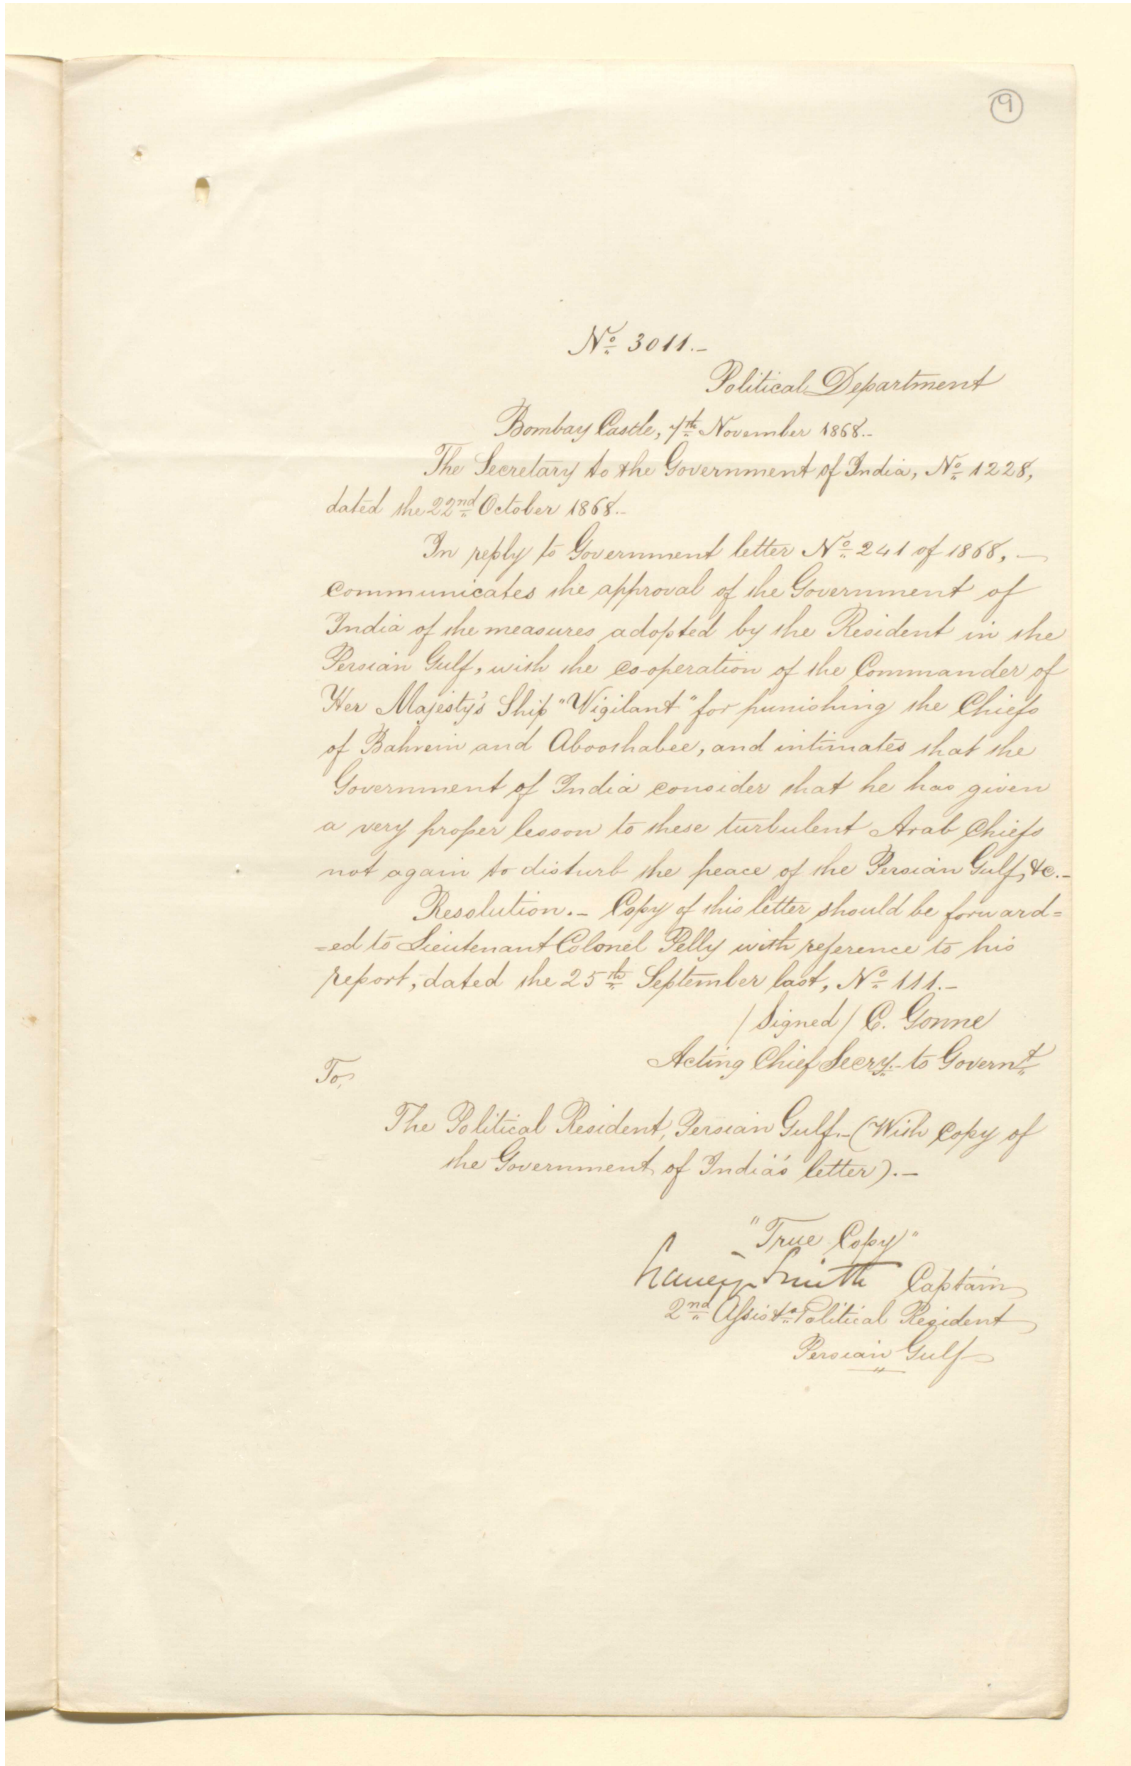 9
No 3011.-
Political Department
Bombay Castle, 7th November 1868.-
The Secretary to the Government of India, No 1228,
dated the 22nd October 1868.-
In reply to Government letter No 241 of 1868, -
communicates the approval of the Government of
India of the measures adopted by the Resident in the
Persian Gulf, with the co-operation of the Commander of
Her Majesty's Ship "Vigilant" for punishing the Chiefs
of Bahrein and Abooshabee, and intimates that the
Government of India consider that he has given
a very proper lesson to these turbulent Arab Chiefs
not again to disturb the peace of the Persian Gulf, &c.-
Resolution.- Copy of this letter should be forward=
=ed to Lieutenant Colonel Pelly with reference to his
report, dated the 25th September last, No 111.-
(Signed) C. Gonne
Acting Chief Secry. to Governt
To,
The Political Resident, Persian Gulf.- (With copy of
the Government of India's letter).-
"True Copy"
Smith Captain
2nd Assistt Political Resident
Persian Gulf